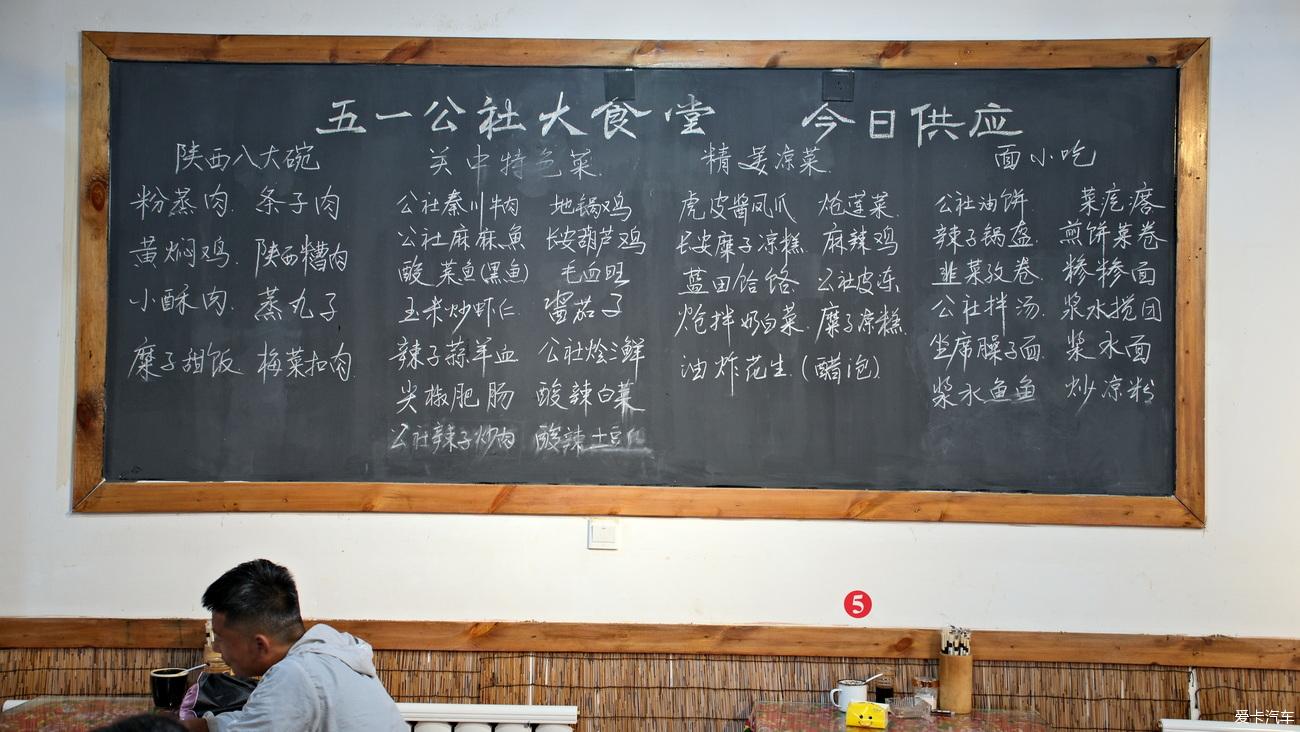 五一公社大食堂 今日供应
陕西八大碗
粉蒸肉 条子肉
黄焖鸡 陕西糟肉
小酥肉 蒸丸子
糜子甜饭 梅菜扣肉
关中特色菜
公社秦川牛肉 地锅鸡
公社麻麻鱼 长安葫芦鸡
酸菜鱼(黑鱼) 毛血旺
玉米炒虾仁 酱茄子
辣子蒜羊血 公社烩三鲜
尖椒肥肠 酸辣白菜
公社辣子炒肉 酸辣土豆
精美凉菜
虎皮酱凤爪 炝莲菜
长安糜子凉糕 麻辣鸡
蓝田饸饹 公社皮冻
炝拌奶白菜 糜子凉糕
油炸花生(醋泡)
面小吃
公社油饼 菜疙瘩
辣子锅盔 煎饼菜卷
韭菜孜卷 糁糁面
公社拌汤 浆水搅团
坐席臊子面 浆水面
浆水鱼鱼 炒凉粉
5
爱卡汽车